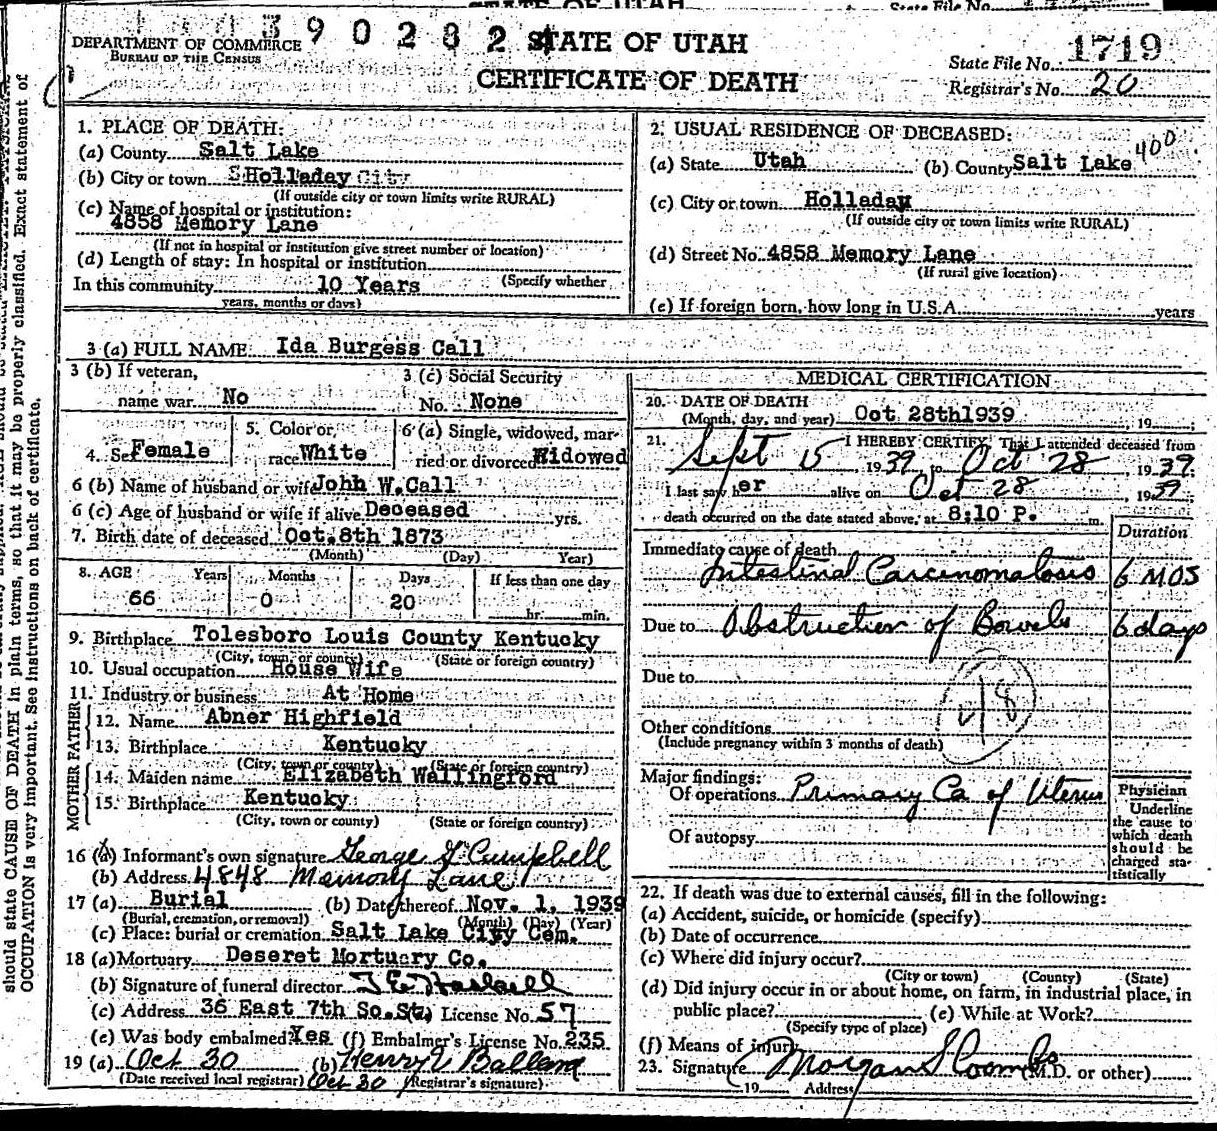 STATE OF UTAH
State File No.
390282 STATE OF UTAH
DEPARTMENT OF COMMERCE
BUREAU OF THE CENSUS
CERTIFICATE OF DEATH
State File No. 1719
Registrar's No. 20
should state CAUSE OF DEATH in plain terms, so that it may be properly classified. Exact statement of
OCCUPATION is very important. See instructions on back of certificate.
1. PLACE OF DEATH:
(a) County Salt Lake
(b) City or town Holladay City
(If outside city or town limits write RURAL)
(c) Name of hospital or institution:
4858 Memory Lane
(If not in hospital or institution give street number or location)
(d) Length of stay: In hospital or institution
In this community 10 Years (Specify whether
years, months or days)
2. USUAL RESIDENCE OF DECEASED:
400
(a) State Utah (b) County Salt Lake
(c) City or town Holladay
(If outside city or town limits write RURAL)
(d) Street No. 4858 Memory Lane
(If rural give location)
(e) If foreign born, how long in U.S.A. years
3 (a) FULL NAME Ida Burgess Call
3 (b) If veteran, name war No
3 (c) Social Security No. None
4. Sex Female
5. Color or race White
6 (a) Single, widowed, married or divorced Widowed
6 (b) Name of husband or wife John W. Call
6 (c) Age of husband or wife if alive Deceased yrs.
7. Birth date of deceased Oct. 8th 1873
(Month) (Day) Year)
8. AGE Years Months Days If less than one day
66 0 20 hr. min.
9. Birthplace Tolesboro Louis County Kentucky
(City, town, or county) (State or foreign country)
10. Usual occupation House Wife
11. Industry or business At Home
FATHER
12. Name Abner Highfield
13. Birthplace Kentucky
(City, town or county) (State or foreign country)
MOTHER
14. Maiden name Elizabeth Wallingford
15. Birthplace Kentucky
(City, town or county) (State or foreign country)
16 (a) Informant's own signature George Campbell
(b) Address 4848 Memory Lane
17 (a) Burial (b) Date thereof Nov. 1, 1939
(Burial, cremation, or removal) (Month) (Day) (Year)
(c) Place: burial or cremation Salt Lake City Cem.
18 (a) Mortuary Deseret Mortuary Co.
(b) Signature of funeral director
(c) Address 36 East 7th So. St. License No. 57
(e) Was body embalmed? Yes (f) Embalmer's License No. 235
19 (a) Oct 30 (b) Henry
(Date received local registrar) Oct 30 (Registrar's signature)
MEDICAL CERTIFICATION
20. DATE OF DEATH
(Month, day, and year) Oct. 28th 1939, 19
21. I HEREBY CERTIFY, That I attended deceased from
Sept 15, 1939, to Oct 28, 1939,
I last saw her alive on Oct 28, 1939;
death occurred on the date stated above, at 8:10 P. m.
Duration
Immediate cause of death
Intestinal Carcinomatosis 6 MOS
Due to Obstruction of Bowels 6 days
Due to
48
Other conditions
(Include pregnancy within 3 months of death)
Major findings:
Of operations Primary Ca of Uterus
Of autopsy
Physician
Underline
the cause to
which death
should be
charged sta-
tistically
22. If death was due to external causes, fill in the following:
(a) Accident, suicide, or homicide (specify)
(b) Date of occurrence
(c) Where did injury occur?
(City or town) (County) (State)
(d) Did injury occur in or about home, on farm, in industrial place, in
public place? (e) While at Work?
(Specify type of place)
(f) Means of injury
23. Signature Morgan S Coombs (M.D. or other)
19 Address